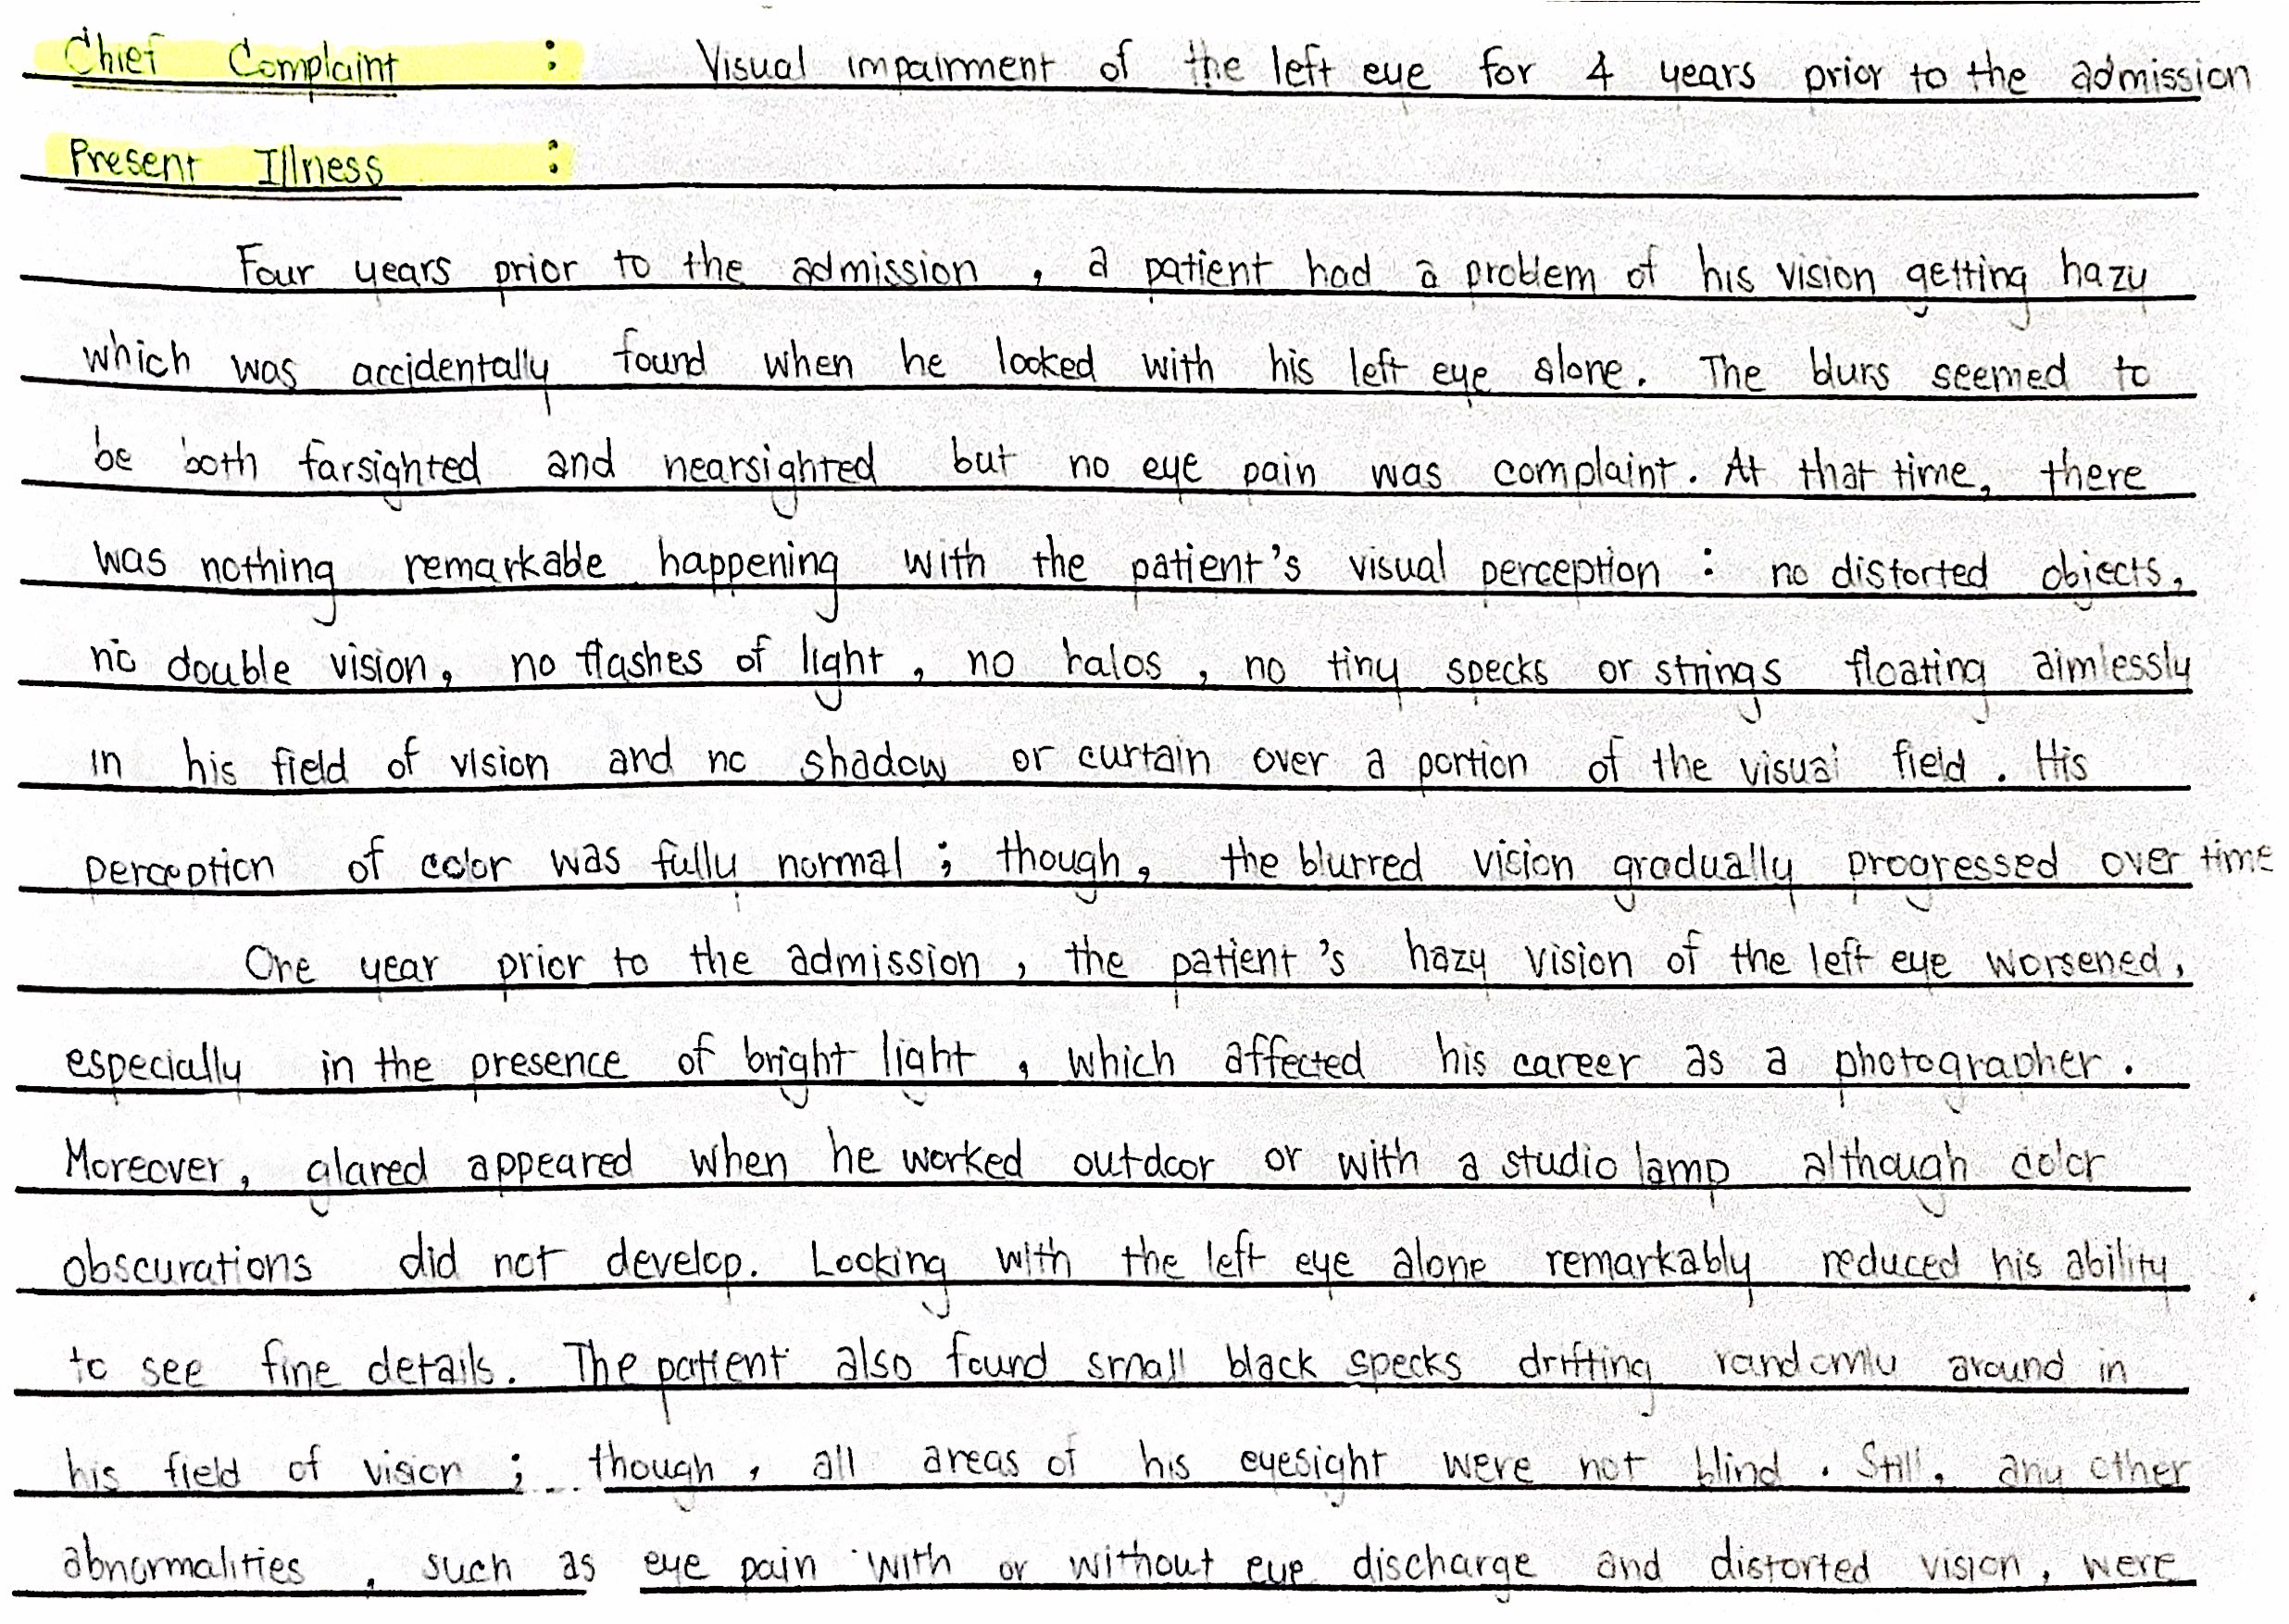 Chief Complaint : Visual impairment of the left eye for 4 years prior to the admission
Present Illness :
Four years prior to the admission , a patient had a problem of his vision getting hazy
which was accidentally found when he looked with his left eye alone. The blurs seemed to
be both farsighted and nearsighted but no eye pain was complaint. At that time, there
was nothing remarkable happening with the patient's visual perception : no distorted objects,
no double vision, no flashes of light , no halos , no tiny specks or strings floating aimlessly
in his field of vision and no shadow or curtain over a portion of the visual field . His
perception of color was fully normal ; though, the blurred vision gradually progressed over time
One year prior to the admission , the patient's hazy vision of the left eye worsened,
especially in the presence of bright light , which affected his career as a photographer .
Moreover, glared appeared when he worked outdoor or with a studio lamp although color
obscurations did not develop. Looking with the left eye alone remarkably reduced his ability
to see fine details. The patient also found small black specks drifting randomly around in
his field of vision ; though , all areas of his eyesight were not blind . Still, any other
abnormalities , such as eye pain with or without eye discharge and distorted vision, were